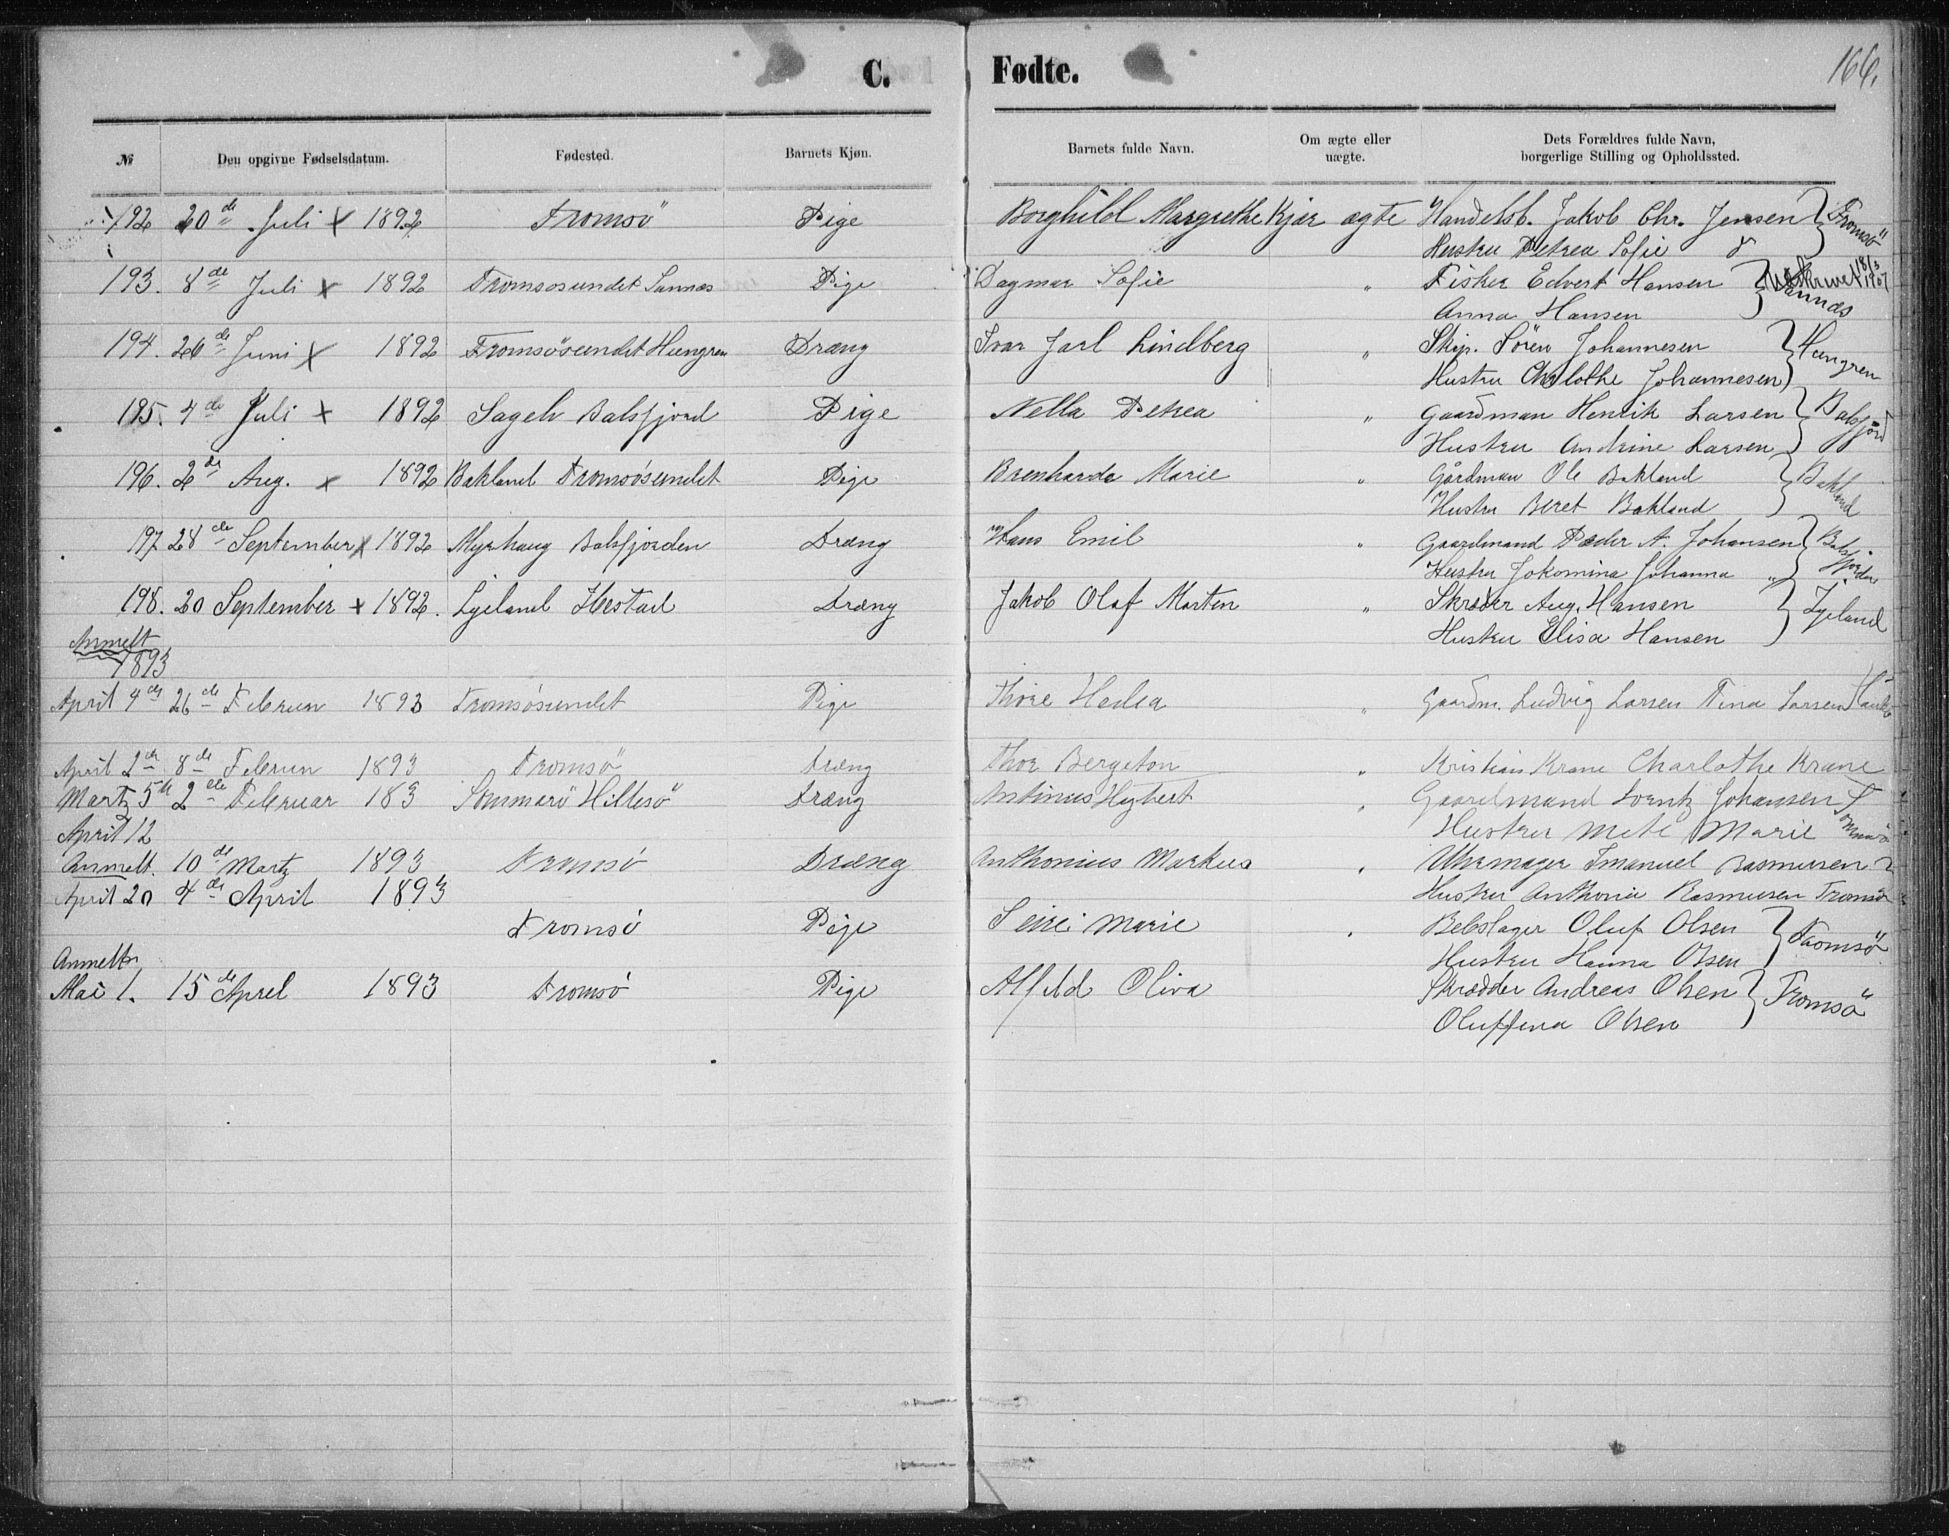 C. Fødte. 166.
№ Den opgivne Fødselsdatum. Fødested. Barnets Kjøn. Barnets fulde Navn. Om ægte eller uægte. Dets Forældres fulde Navn, borgerlige Stilling og Opholdssted.
192 20de Juli x 1892 Tromsö Pige Borghild Margrethe Kjær ægte Handelsb. Jakob Chr. Jensen } Tromsö
Hustru Petrea Sofie
193. 8de Juli x 1892 Tromsosundet Sannæs Pige Dagmar Sofie " Fisker Edvert Hansen } Sannæs Udskrevet 18/3 1907
Anna Hansen
194. 26de Juni x 1892 Tromsøsundet Hungren Dræng Ivar Jarl Lindberg " Skip. Sören Johannesen } Hungren
Hustru Charlothe Johannesen
195. 4de Juli x 1892 Sagelv Balsfjord Pige Nella Petrea " Gaardman Henrik Larsen } Balsfjord
Hustru Andrine Larsen
196. 2de Aug. x 1892 Bakland Tromsøsundet Pige Brenharda Marie " Gårdman Ole Bakland } Bakland
Hustru Beret Bakland
197 28de September x 1892 Myrhaug Balsfjorden Dræng Hans Emil " Gaardmand Pæder A. Johansen } Balsfjorden
Hustru Jokomina Johanna "
198. 20 September x 1892. Lyeland Hestad Dræng Jakob Olaf Marten " Skræder Aug. Hansen } Lyeland
Hustru Elisa Hansen
Anmelt
1893
April 4de 26de Februn 1893 Tromsøsundet Pige Thore Hedea " Gaardm. Ludvig Larsen Tina Larsen
April 2de 8de Februn 1893 Tromsö Dræng Thor Bergeton " Kristian Krane Charlothe Krane
Martz 5te 2den Februar 183 Sommarö Hillesö Dræng Antinus Hegbert " Gaardmand Lorentz Johansen
Hustru Mete Marie
April 12
Anmelt. 10de Martz 1893 Tromsö Dræng Anthonius Markus " Uhrmager Imanuel Rasmusen
Hustru Anthonie Rasmusen Tromsö
April 20 4de April 1893
Tromsö Pige Seire Marie " Rebslager Oluf Olsen } Tromsö
Hustru Hanna Olsen
Anmelt
Mai 1. 15de Aprel 1893 Tromsö Pige Alfild Oliva Skrædder Andreas Olsen } Tromsö
Oluffina Olsen